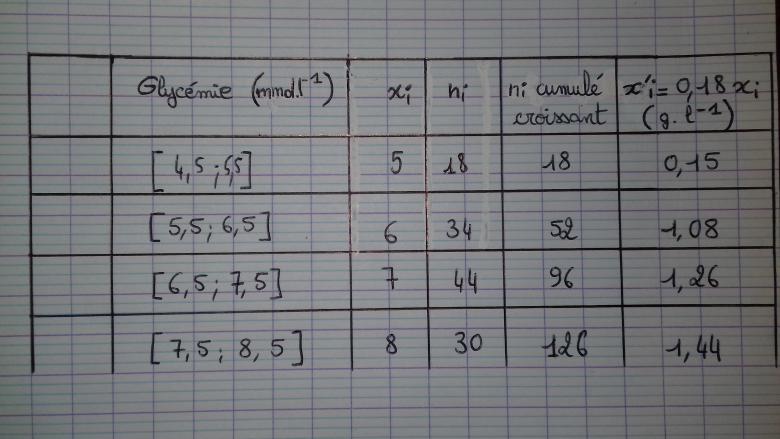 Glycémie (mmol.l⁻¹) xi ni ni cumulé croissant x'i = 0,18 xi (g. l⁻¹)
[4,5 ; 5,5] 5 18 18 0,15
[5,5 ; 6,5] 6 34 52 1,08
[6,5 ; 7,5] 7 44 96 1,26
[7,5 ; 8,5] 8 30 126 1,44